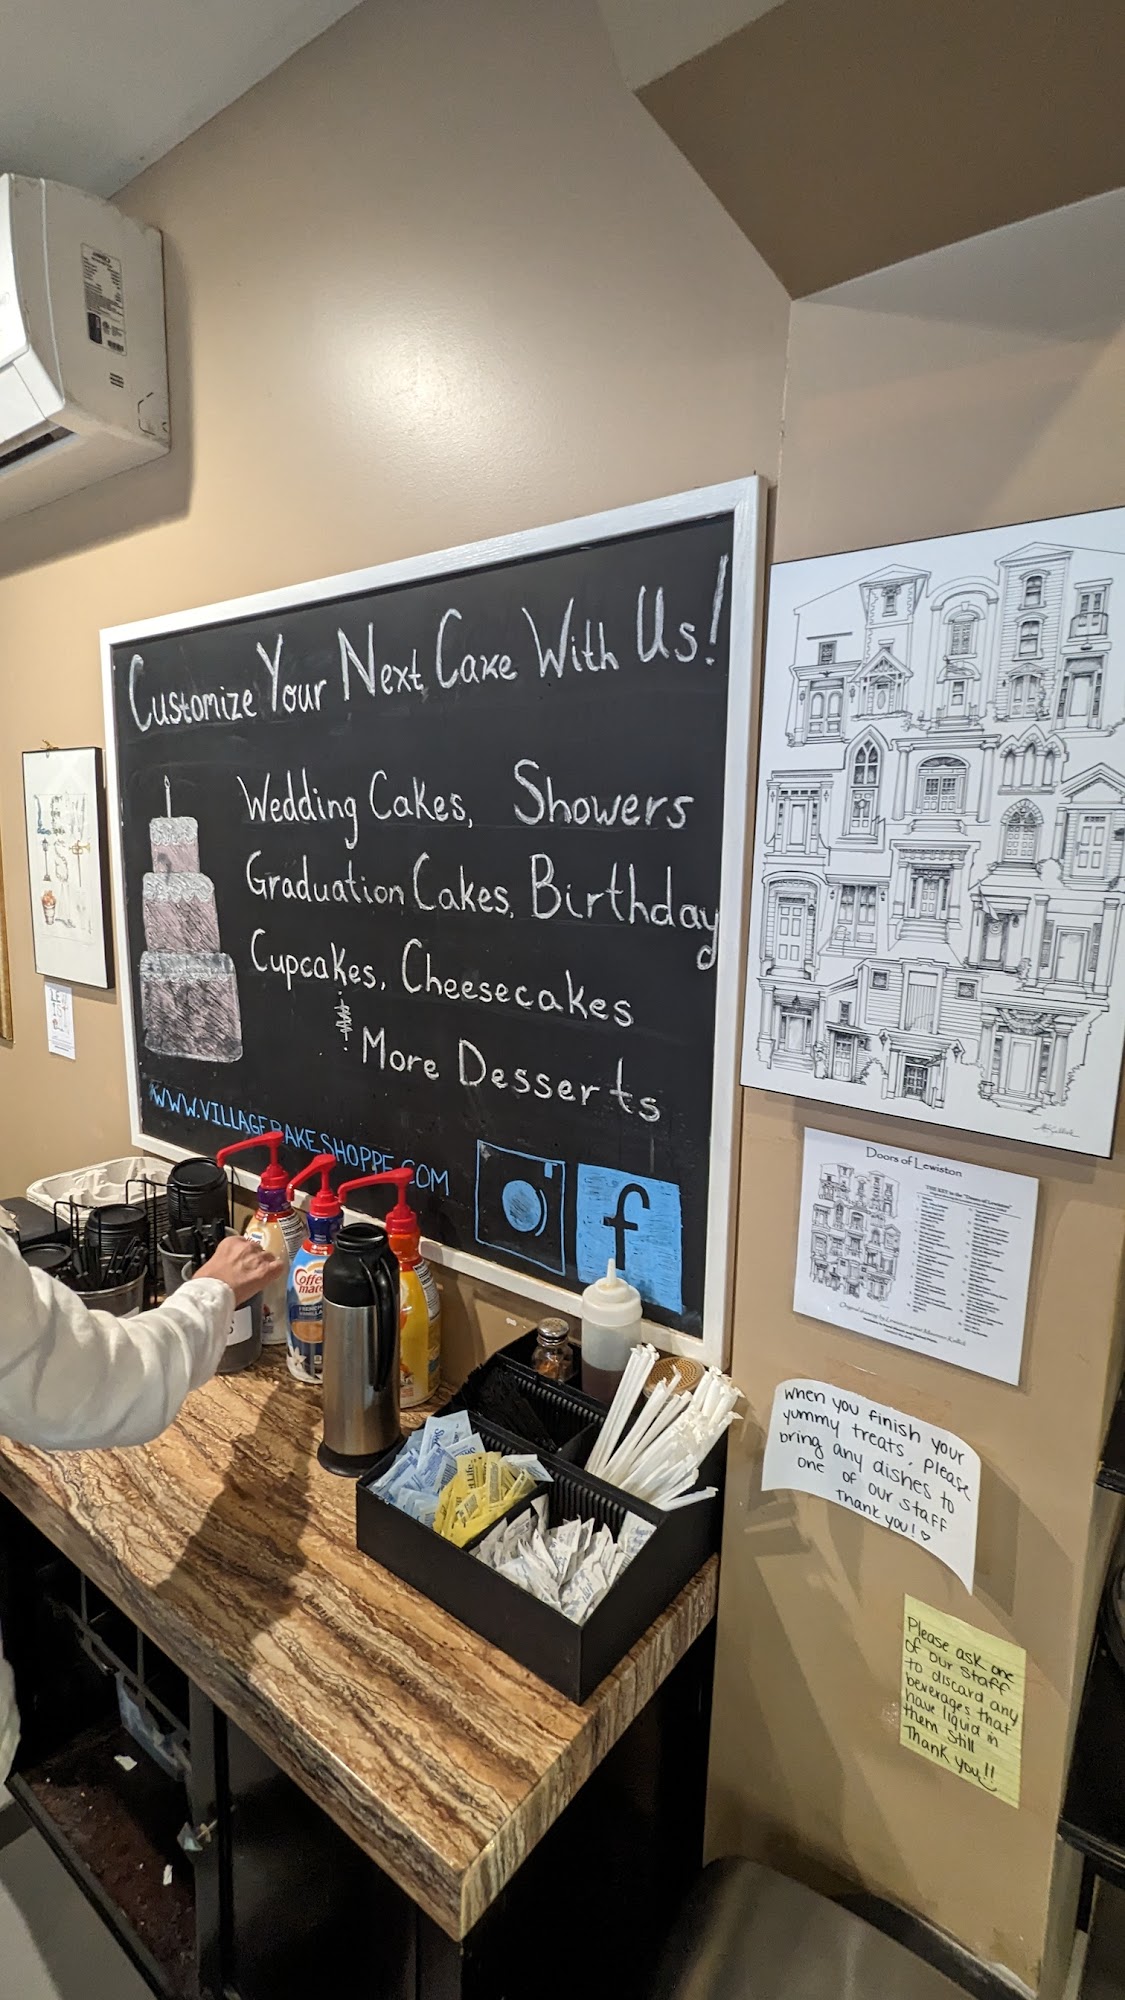 Customize Your Next Cake With Us!
Wedding Cakes, Showers
Graduation Cakes, Birthday
Cupcakes, Cheesecakes
& More Desserts
WWW.VILLAGEBAKESHOPPE.COM
f
Coffee
mate
Doors of Lewiston
When you finish your
yummy treats, please
bring any dishes to
one of our staff
Thank you! ♡
Please ask one
of our staff
to discard any
beverages that
have liquid in
them still
Thank you!!